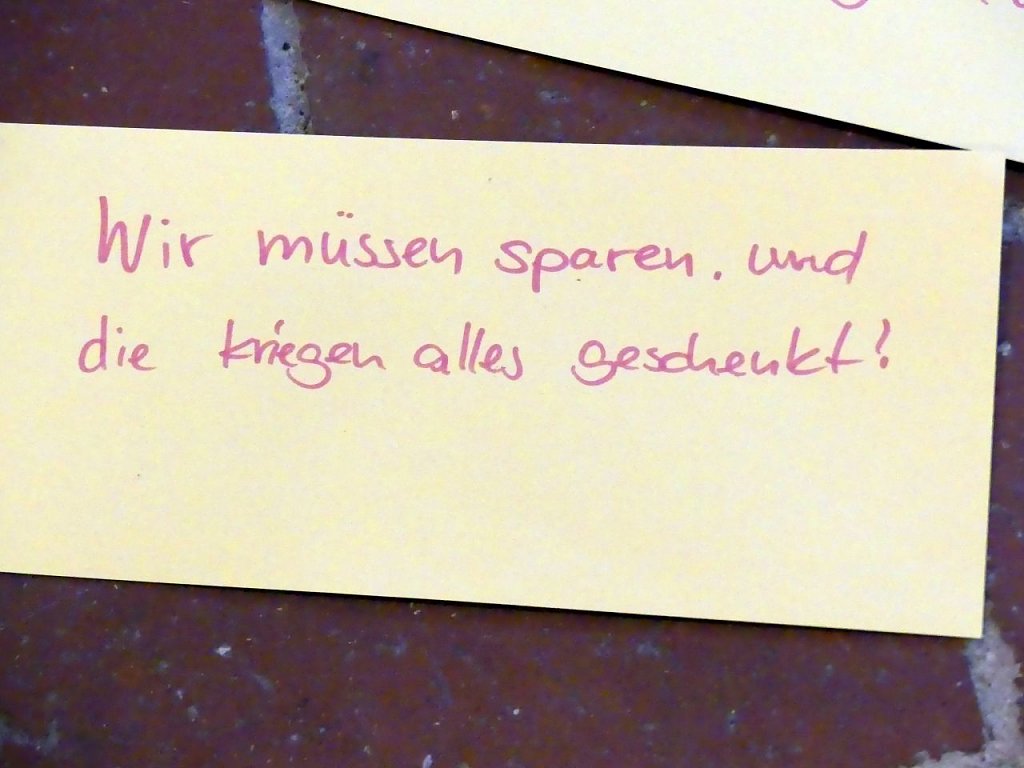 Wir müssen sparen. und
die kriegen alles geschenkt!